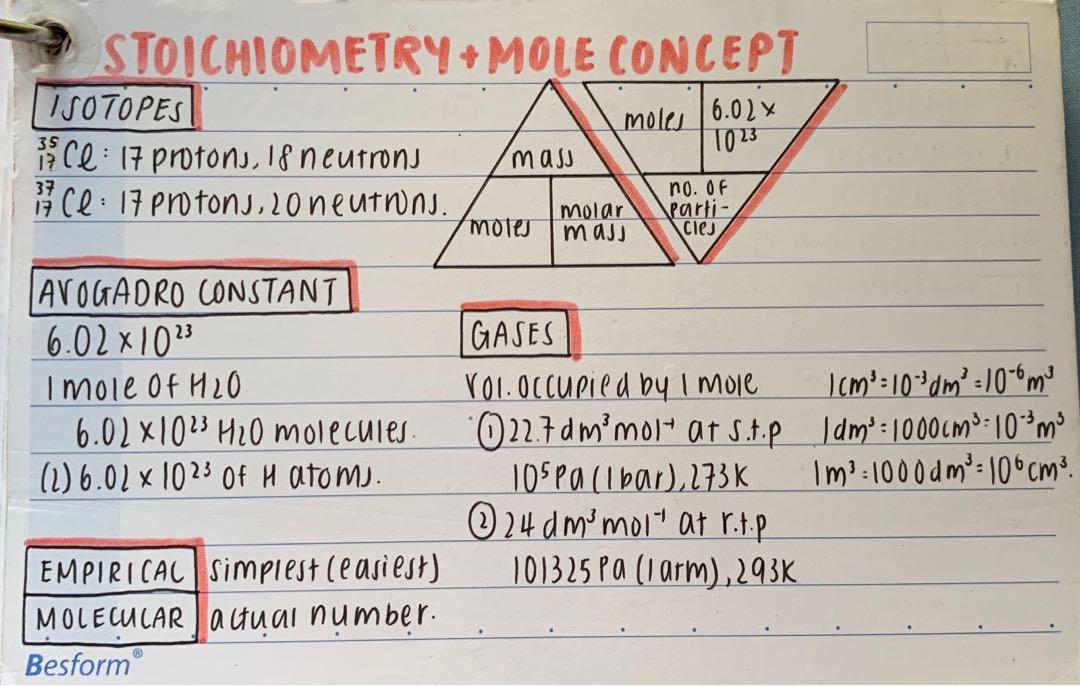 STOICHIOMETRY + MOLE CONCEPT
ISOTOPES
³⁵₁₇Cl : 17 protons, 18 neutrons
³⁷₁₇Cl : 17 protons, 20 neutrons.
mass
moles
molar
mass
moles
6.02 ×
10²³
no. of
parti-
cles
AVOGADRO CONSTANT
6.02 × 10²³
1 mole of H2O
6.02 × 10²³ H2O molecules.
(2) 6.02 × 10²³ of H atoms.
GASES
vol. occupied by 1 mole
① 22.7 dm³ mol⁻¹ at s.t.p
10⁵ Pa (1 bar), 273K
② 24 dm³ mol⁻¹ at r.t.p
101325 Pa (1 atm), 293K
1cm³ = 10⁻³ dm³ = 10⁻⁶ m³
1dm³ = 1000cm³ = 10⁻³ m³
1m³ = 1000 dm³ = 10⁶ cm³.
EMPIRICAL simplest (easiest)
MOLECULAR actual number.
Besform®